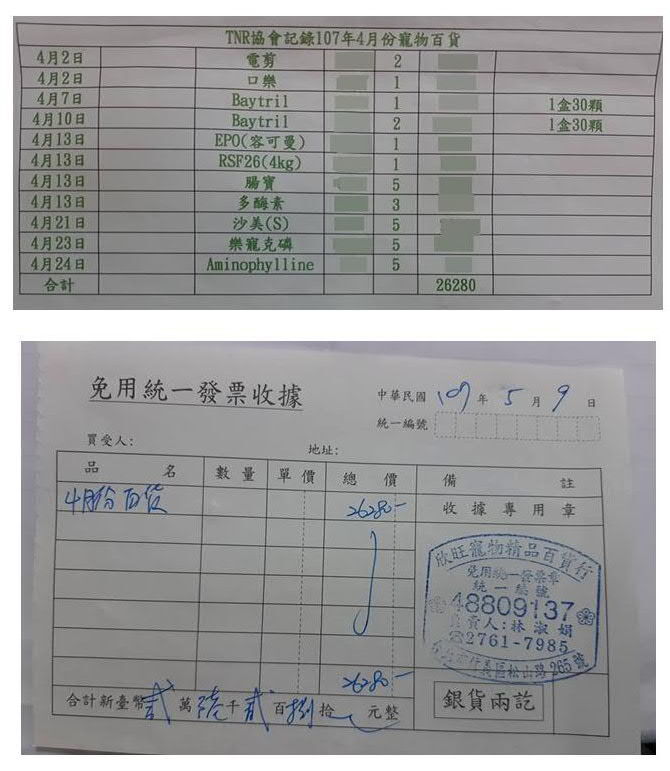 TNR協會記錄107年4月份寵物百貨
4月2日 電剪 2
4月2日 口樂 1
4月7日 Baytril 1 1盒30顆
4月10日 Baytril 2 1盒30顆
4月13日 EPO(容可曼) 1
4月13日 RSF26(4kg) 1
4月13日 腸寶 5
4月13日 多酶素 3
4月21日 沙美(S) 5
4月23日 樂寵克磷 5
4月24日 Aminophylline 5
合計 26280
免用統一發票收據
中華民國 107 年 5 月 9 日
統一編號
買受人:
地址:
品名 數量 單價 總價 備註
4月份百貨 26280-
收據專用章
欣旺寵物精品百貨行
免用統一發票章
統一編號
48809137
負責人:林淑娟
☎2761-7985
信義區松山路265號
26280-
合計新臺幣 貳 萬 陸 千 貳 百 捌 拾 元整
銀貨兩訖